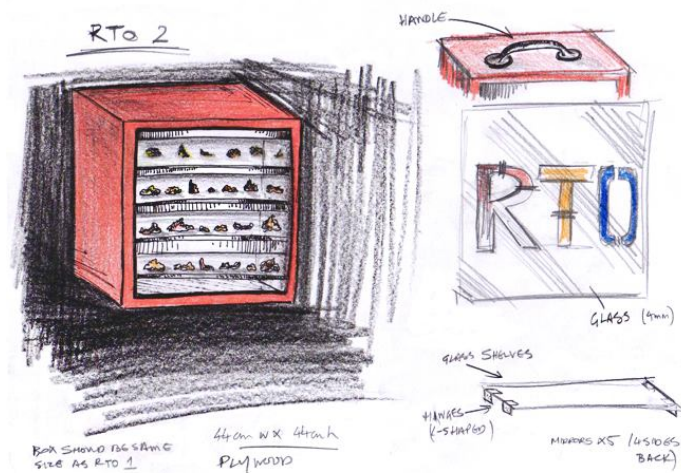 RTO 2
HANDLE
RTO
GLASS (4mm)
GLASS SHELVES
HINGES
(L-SHAPED)
MIRRORS X5 (4 SIDES
BACK)
BOX SHOULD BE SAME
SIZE AS RTO 1
44cm w X 44cm h
PLYWOOD